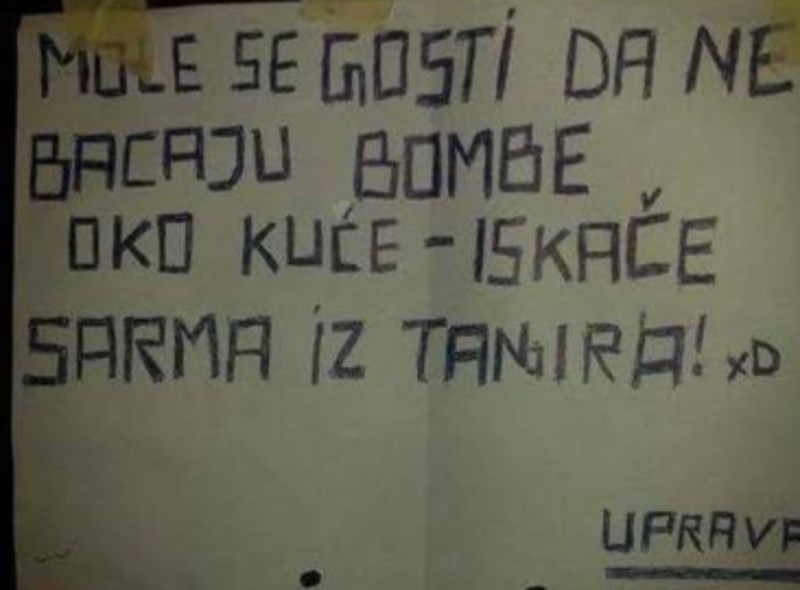 MOLE SE GOSTI DA NE
BACAJU BOMBE
OKO KUĆE - ISKAČE
SARMA IZ TANJIRA! xD
UPRAVA